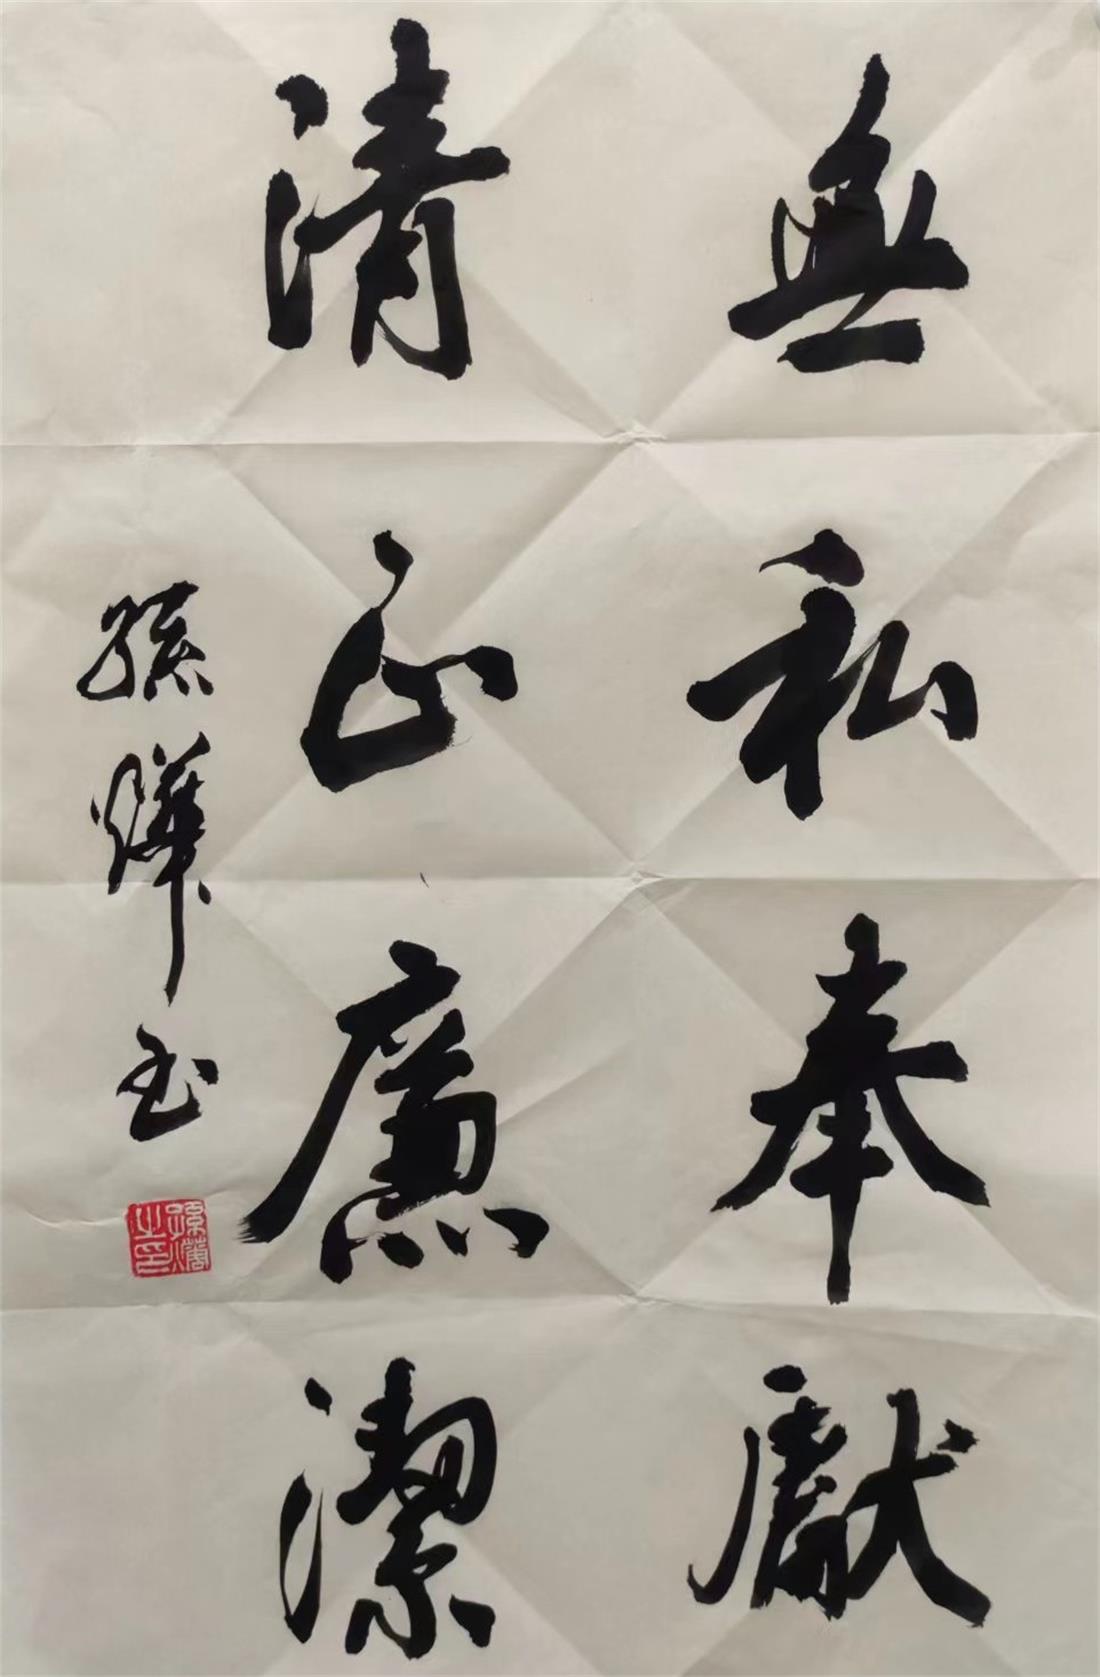 無私奉獻
清正廉潔
孫燁玉